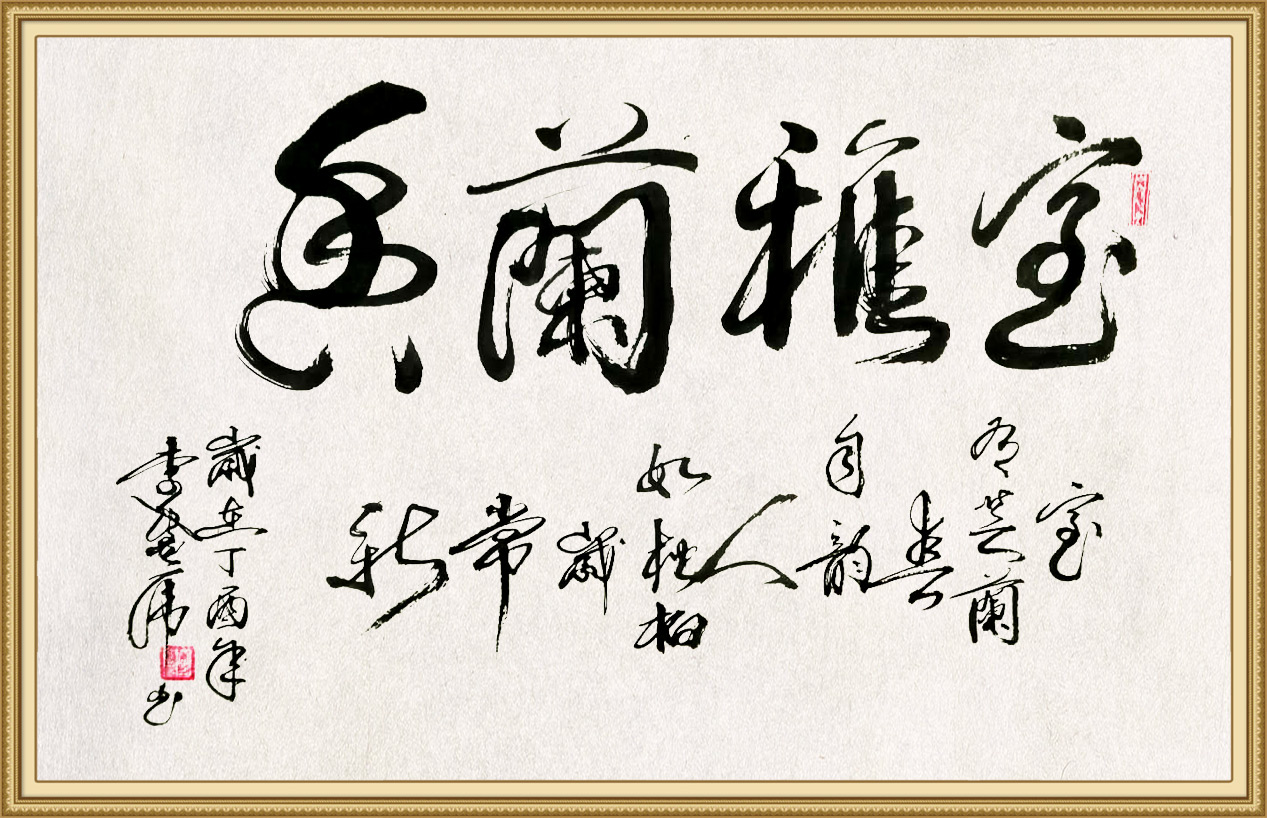 室雅蘭香
室有芝蘭春自韻人如松柏歲常新
歲在丁酉年
李
书